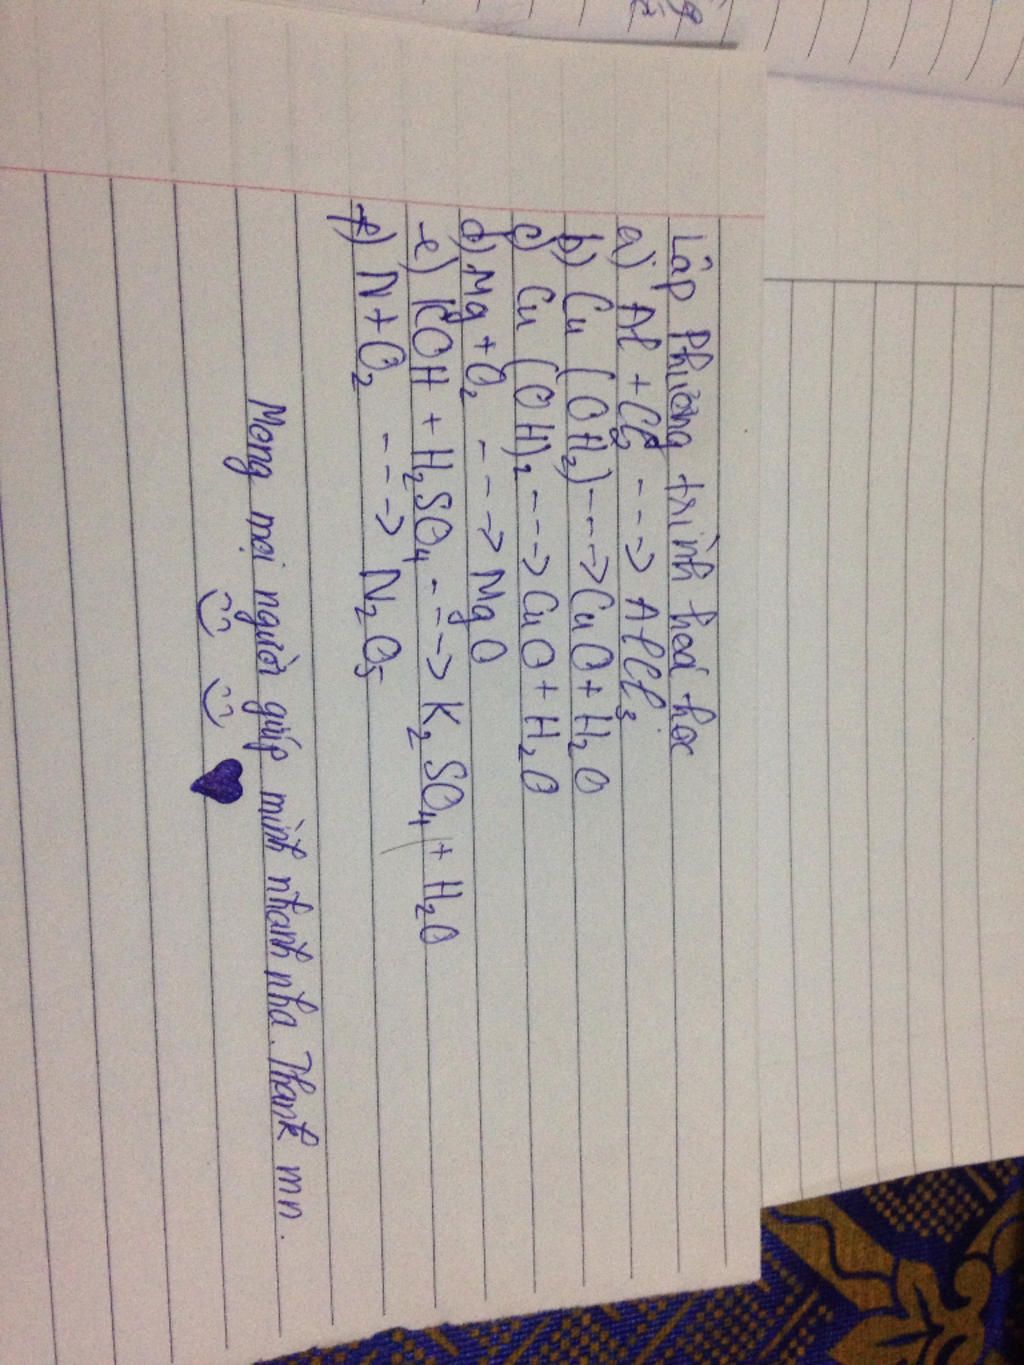 Lập Phương trình hoá học
a) Al + Cl₂ ---> AlCl₃
b) Cu (OH₂) ---> CuO + H₂O
c) Cu (OH)₂ ---> CuO + H₂O
d) Mg + O₂ ---> MgO
e) KOH + H₂SO₄ ---> K₂SO₄ + H₂O
f) N + O₂ ---> N₂O₅
Mong mọi người giúp mình nhanh nha. Thank mn.